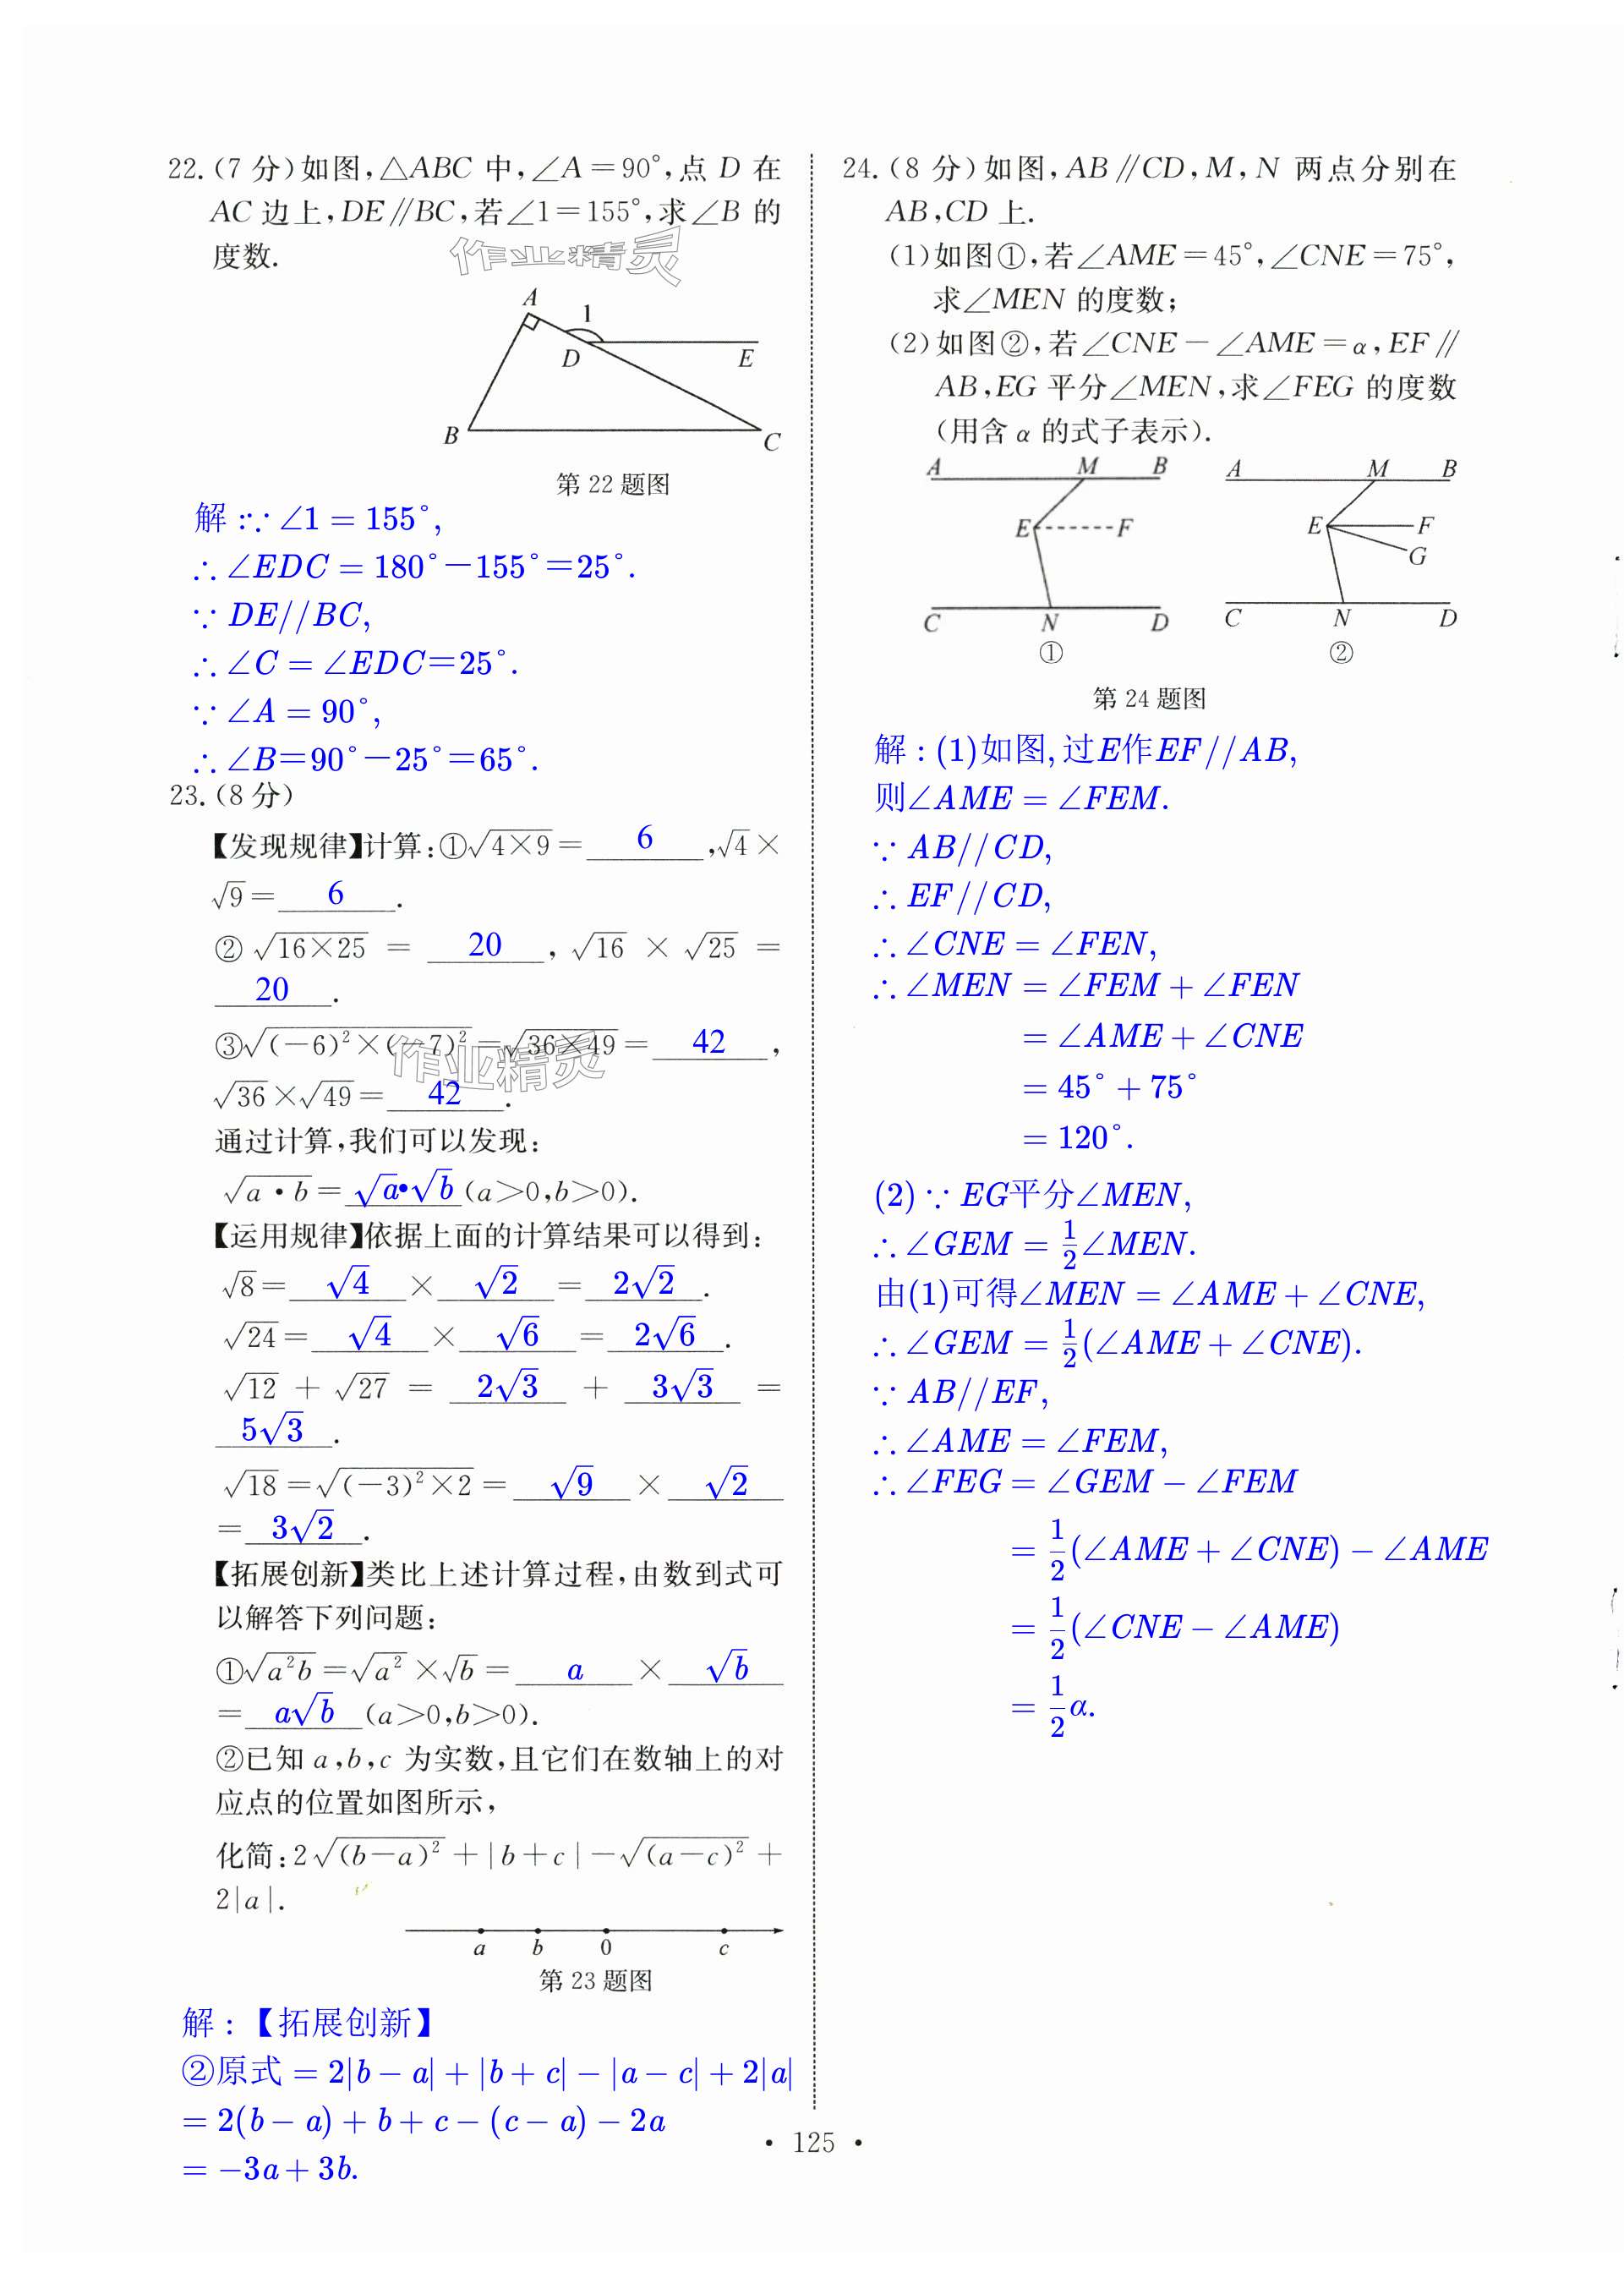 22.(7 分)如图,△ABC 中,∠A=90°,点 D 在
AC 边上,DE∥BC,若∠1=155°,求∠B 的
度数.
作业精灵
A
1
D
E
B
C
第 22 题图
解:∵ ∠1 = 155°,
∴ ∠EDC = 180°−155°=25°.
∵ DE//BC,
∴ ∠C = ∠EDC=25°.
∵ ∠A = 90°,
∴ ∠B=90°−25°=65°.
23.(8 分)
【发现规律】计算:①√(4×9)= 6 ,√4×
√9= 6 .
② √(16×25) = 20 , √16 × √25 =
20 .
③√((−6)²×(−7)²)=√(36×49)= 42 ,
作业精灵
√36×√49= 42 .
通过计算,我们可以发现:
√(a·b)= √a•√b (a>0,b>0).
【运用规律】依据上面的计算结果可以得到:
√8= √4 × √2 = 2√2 .
√24= √4 × √6 = 2√6 .
√12 + √27 = 2√3 + 3√3 =
5√3 .
√18=√((−3)²×2)= √9 × √2
= 3√2 .
【拓展创新】类比上述计算过程,由数到式可
以解答下列问题:
①√(a²b)=√(a²)×√b= a × √b
= a√b (a>0,b>0).
②已知 a,b,c 为实数,且它们在数轴上的对
应点的位置如图所示,
化简:2√((b−a)²)+|b+c|−√((a−c)²)+
2|a|.
a b 0 c
第 23 题图
解:【拓展创新】
②原式 = 2|b − a| + |b + c| − |a − c| + 2|a|
= 2(b − a) + b + c − (c − a) − 2a
= −3a + 3b.
24.(8 分)如图,AB∥CD,M,N 两点分别在
AB,CD 上.
(1)如图①,若∠AME=45°,∠CNE=75°,
求∠MEN 的度数;
(2)如图②,若∠CNE−∠AME=α,EF∥
AB,EG 平分∠MEN,求∠FEG 的度数
(用含 α 的式子表示).
A M B
E F
C N D
①
A M B
E F
G
C N D
②
第 24 题图
解:(1)如图,过E作EF//AB,
则∠AME = ∠FEM.
∵ AB//CD,
∴ EF//CD,
∴ ∠CNE = ∠FEN,
∴ ∠MEN = ∠FEM + ∠FEN
= ∠AME + ∠CNE
= 45° + 75°
= 120°.
(2) ∵ EG平分∠MEN,
∴ ∠GEM = 1/2∠MEN.
由(1)可得∠MEN = ∠AME + ∠CNE,
∴ ∠GEM = 1/2(∠AME + ∠CNE).
∵ AB//EF,
∴ ∠AME = ∠FEM,
∴ ∠FEG = ∠GEM − ∠FEM
= 1/2(∠AME + ∠CNE) − ∠AME
= 1/2(∠CNE − ∠AME)
= 1/2α.
• 125 •